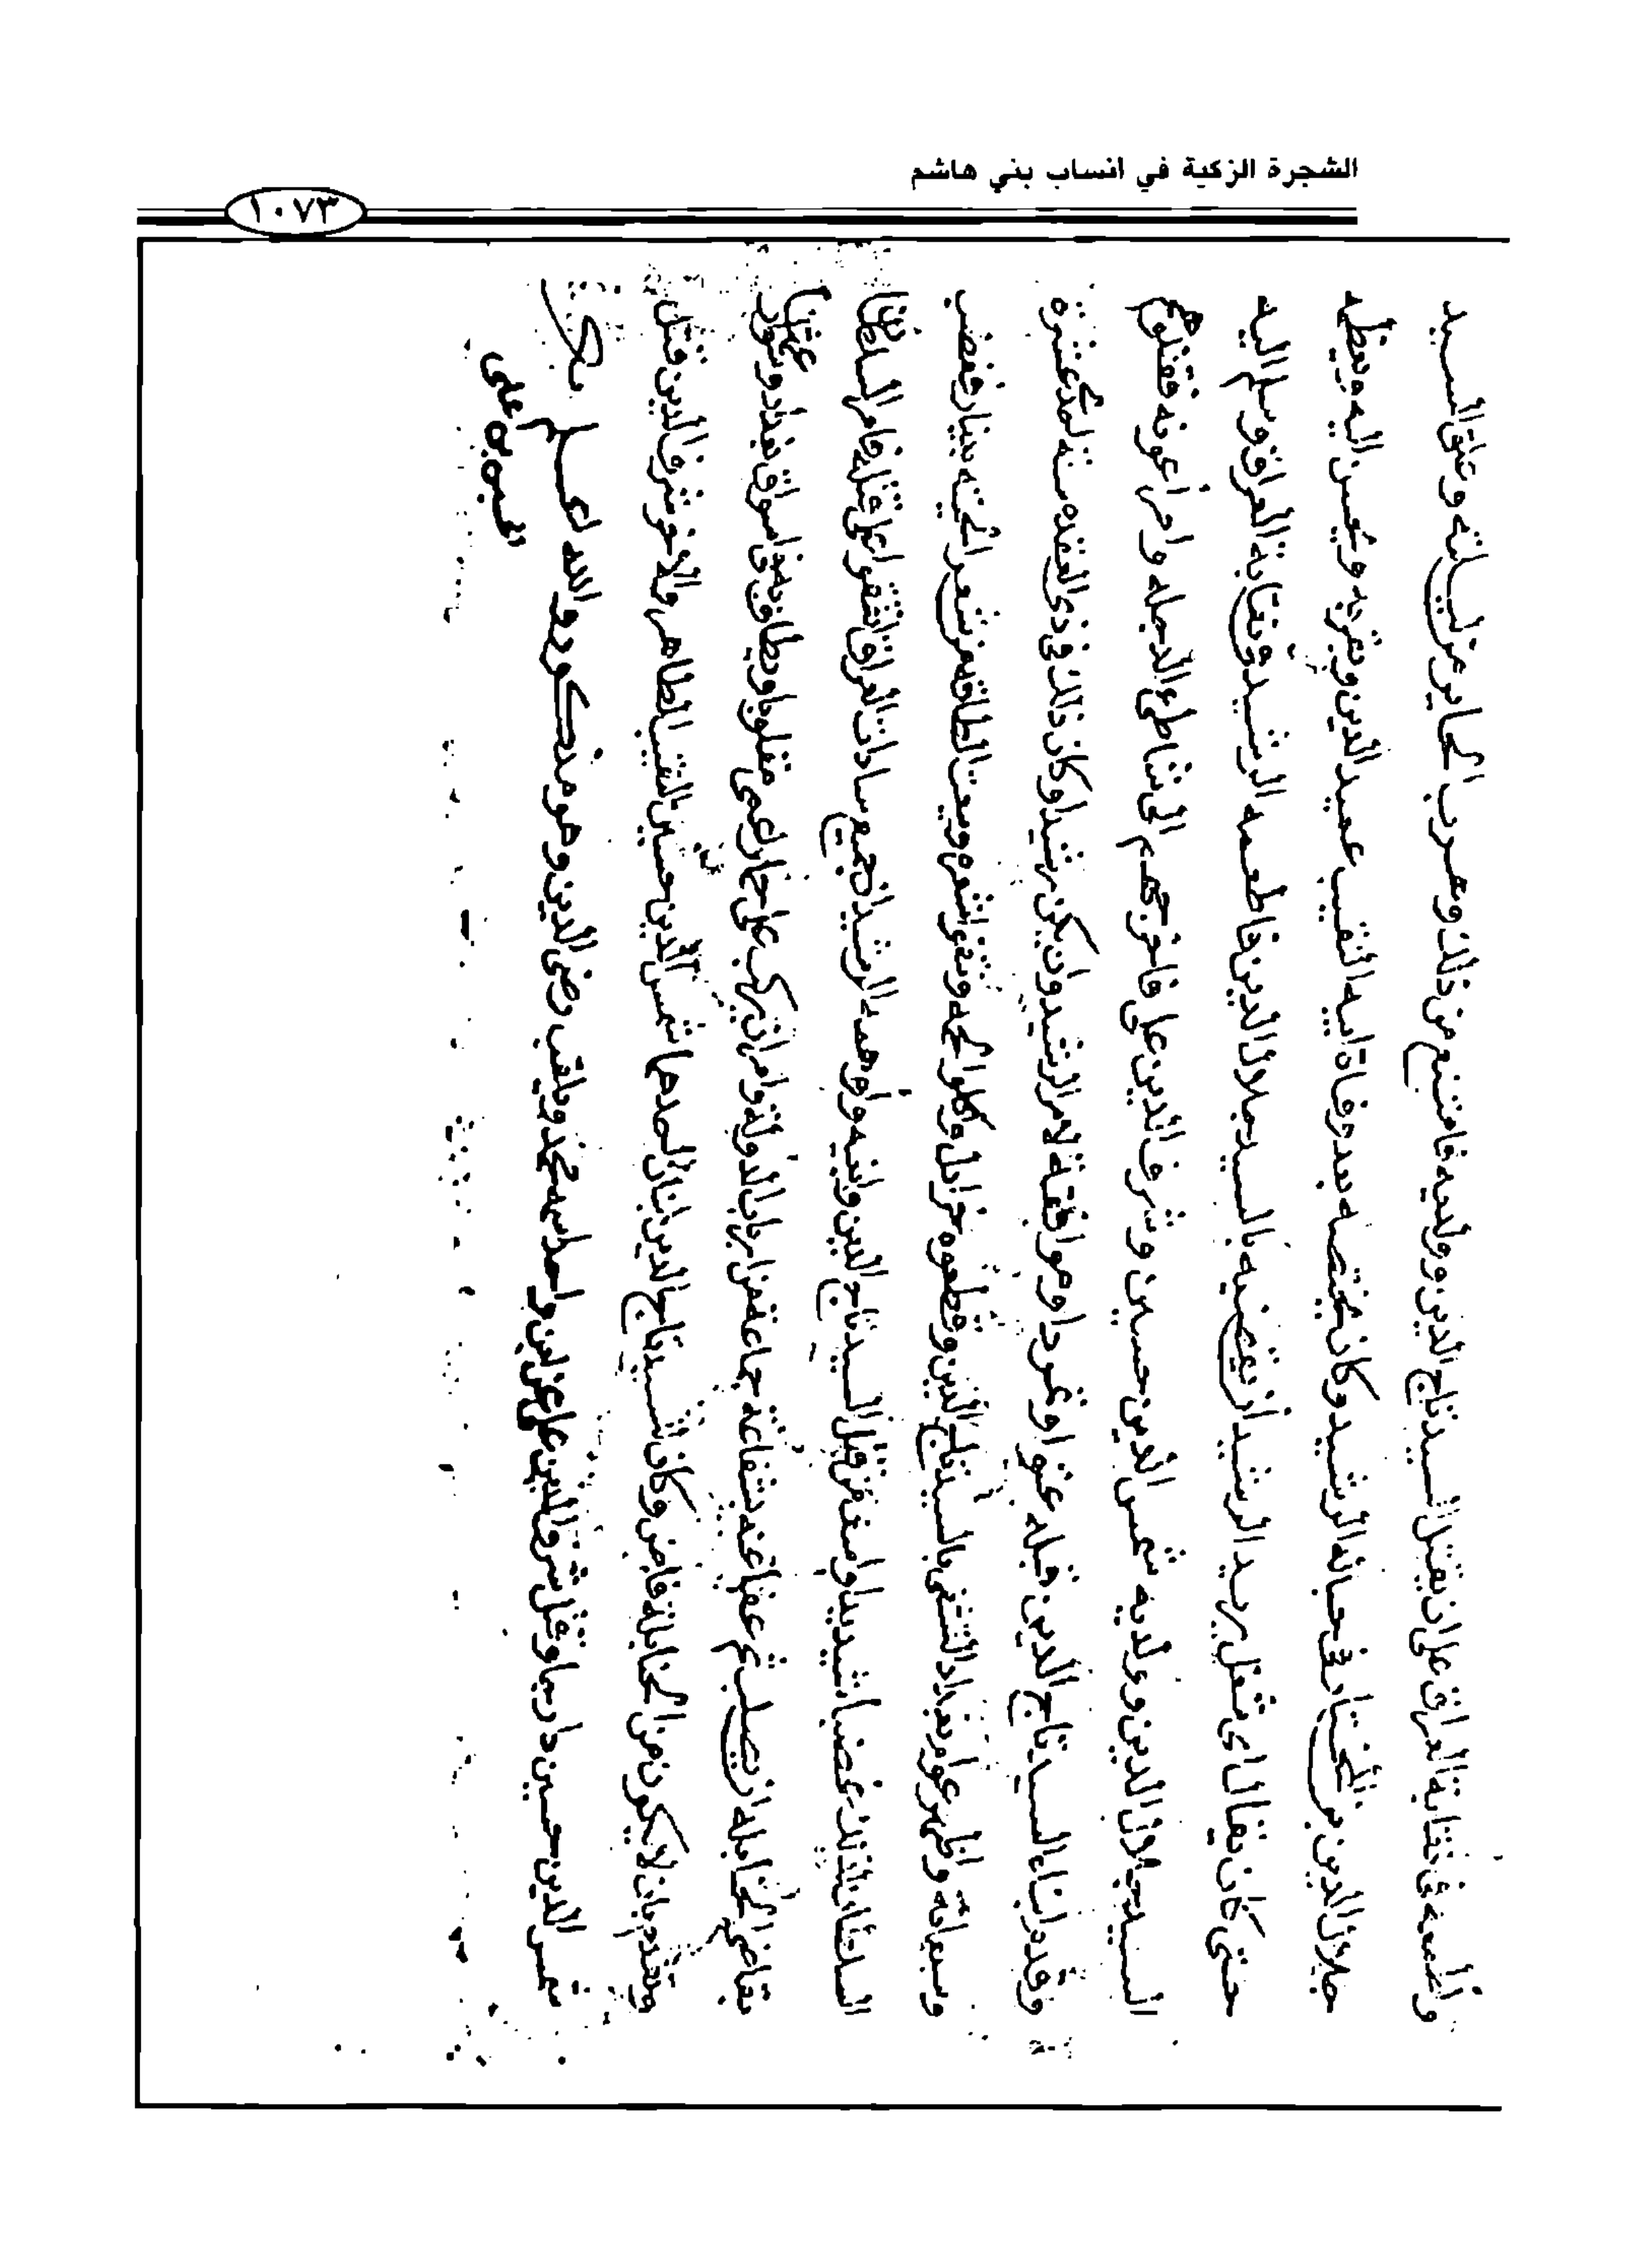 الشجرة الزكية في انساب بني هاشم
١٠٧٣
وأطمعه في نقابة العراق على ان يقتل السيد تاج الدين وولديه فامتنع من ذلك وهرب الحاير عن ليلته وعلق السيد
جلال الدين بن المختار في حبالة الرشيد وكان يختصه بعد وفاة ابيه النقيب عميد الدين ويقربه ويحسن اليه ويعظمه
حتى كان يقال اى شغل يريد الرشيد أن يقضيه بالسيد جلال الدين فاطعمه الرشيد في نقابة العراق وسلم اليه
السيد جلال الدين وولديه شمس الدين حسين وشرف الدين على فاخرجهم الى شاطئ الدجله وامر أعونه فقتلوهم
وقدم ابناء السيد تاج الدين قبله عتوا وتمردا وموافقة لامر الرشيد وكان ذلك في ذى القعده سنة
وسبعمائة واظهر عوام بغداد التشفى بالسيد تاج الدين وقطعوه واكلوا لحمه ونتفوا شعره وبيعت الطاقه من شعر لحيته بدينار فغضب
السلطان لذلك غضبا شديدا واسف من قتل السيد تاج الدين وابنيه وأوهمه الرشيد ان جميع سادات العراق اتفقوا على قتله فامر السلطان
بقاضي الحنابله ان يصلب ثم عفا عنه بشفاعة جماعة من ارباب الدولة وامر ان يركب على حمار اعمى مقلوبا ويطاف به في اسواق بغداد
وتقدم بان لا يكون من الحنابلة قاض وكان لسيد تاج الدين ابنان احدهما شمس الدين حسين النقيب الطاهر والاخر شرف الدين قتل
شمس الدين حسين دارجا وقتل شرف الدين على عن ابن واحد اسمه محمد ويلقب رضى الدين وهو مذكور والله اعلم